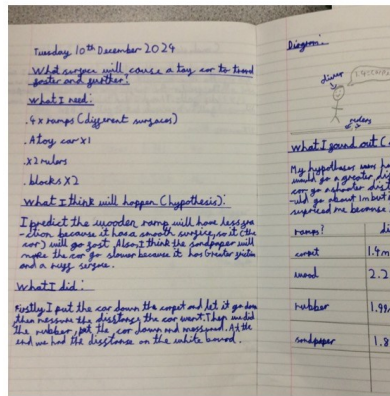 Tuesday 10th December 2024
What surface will cause a toy car to travel
faster and further?
What I need:
.4x ramps (different surfaces)
.A toy car x1
.x2 rulers
.blocks x2
What I think will happen (hypothesis):
I predict the wooden ramp will have less fra
-ction because it has a smooth surface, so it (the
car) will go fast. Also, I think the sandpaper will
make the car go slower because it has Greater friction
and a surface.
What I did:
Firstly I put the car down the carpet and let it go down
then measure the disstance the car went. Then we did
the rubber, put the car down and messured. At the
end we had the disstance on the white board.
Diagram:
driver
What I found out (
My hypothesis was
would go a greater dis
car go a shorter dist
-uld go about 1m but
suprised me because
ramps?
di
carpet
1.4m
wood
2.2
rubber
1.99
sandpaper
1.8